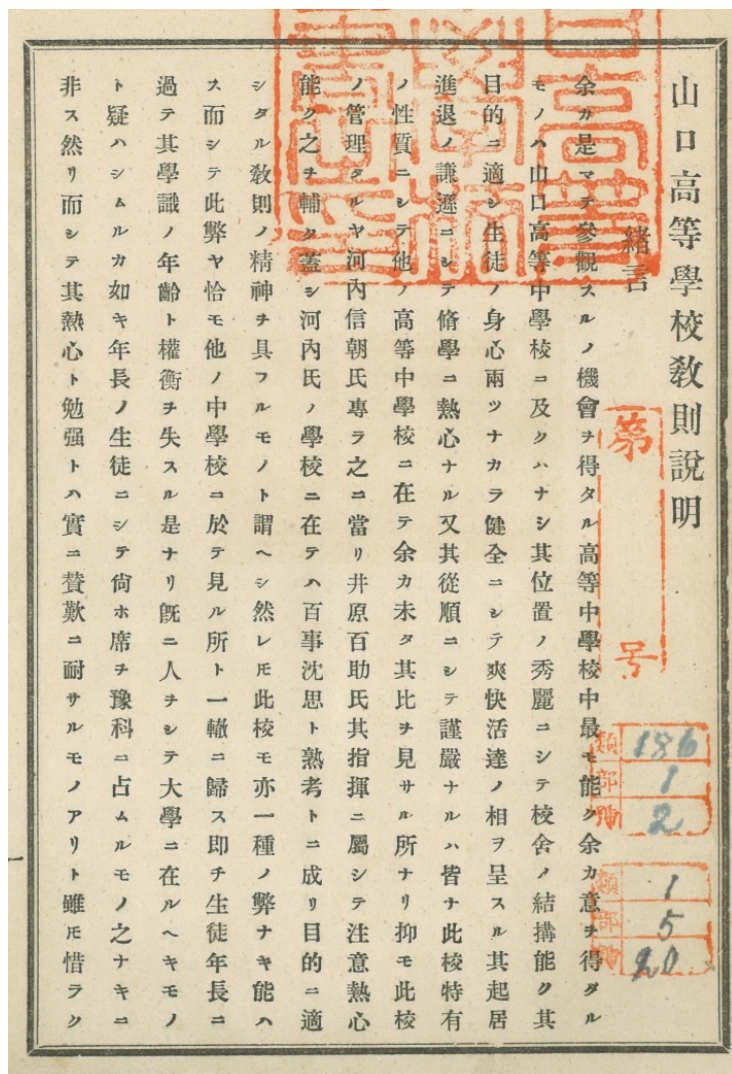 山口高等學校敎則說明
緒言
余カ是マテ參觀スルノ機會ヲ得タル高等中學校中最モ能ク余カ意ヲ得タル
モノハ山口高等中學校ニ及クハナシ其位置ノ秀麗ニシテ校舍ノ結搆能ク其
目的ニ適シ生徒ノ身心兩ツナカラ健全ニシテ爽快活達ノ相ヲ呈スル其起居
進退ノ謙遜ニシテ脩學ニ熱心ナル又其從順ニシテ謹嚴ナルハ皆ナ此校特有
ノ性質ニシテ他ノ高等中學校ニ在テ余カ未タ其比ヲ見サル所ナリ抑モ此校
ノ管理タルヤ河內信朝氏專ラ之ニ當リ井原百助氏其指揮ニ屬シテ注意熱心
能ク之ヲ輔ク蓋シ河內氏ノ學校ニ在テハ百事沈思ト熟考トニ成リ目的ニ適
シタル敎則ノ精神ヲ具フルモノト謂ヘシ然レ𪜈此校モ亦一種ノ弊ナキ能ハ
ス而シテ此弊ヤ恰モ他ノ中學校ニ於テ見ル所ト一轍ニ歸ス即チ生徒年長ニ
過テ其學識ノ年齡ト權衡ヲ失スル是ナリ旣ニ人ヲシテ大學ニ在ルヘキモノ
ト疑ハシムルカ如キ年長ノ生徒ニシテ尙ホ席ヲ豫科ニ占ムルモノ之ナキニ
非ス然リ而シテ其熱心ト勉强トハ實ニ賛歎ニ耐サルモノアリト雖𪜈惜ラク
一
第
号
類 186
部 1
號 2
類 1
部 5
號 20